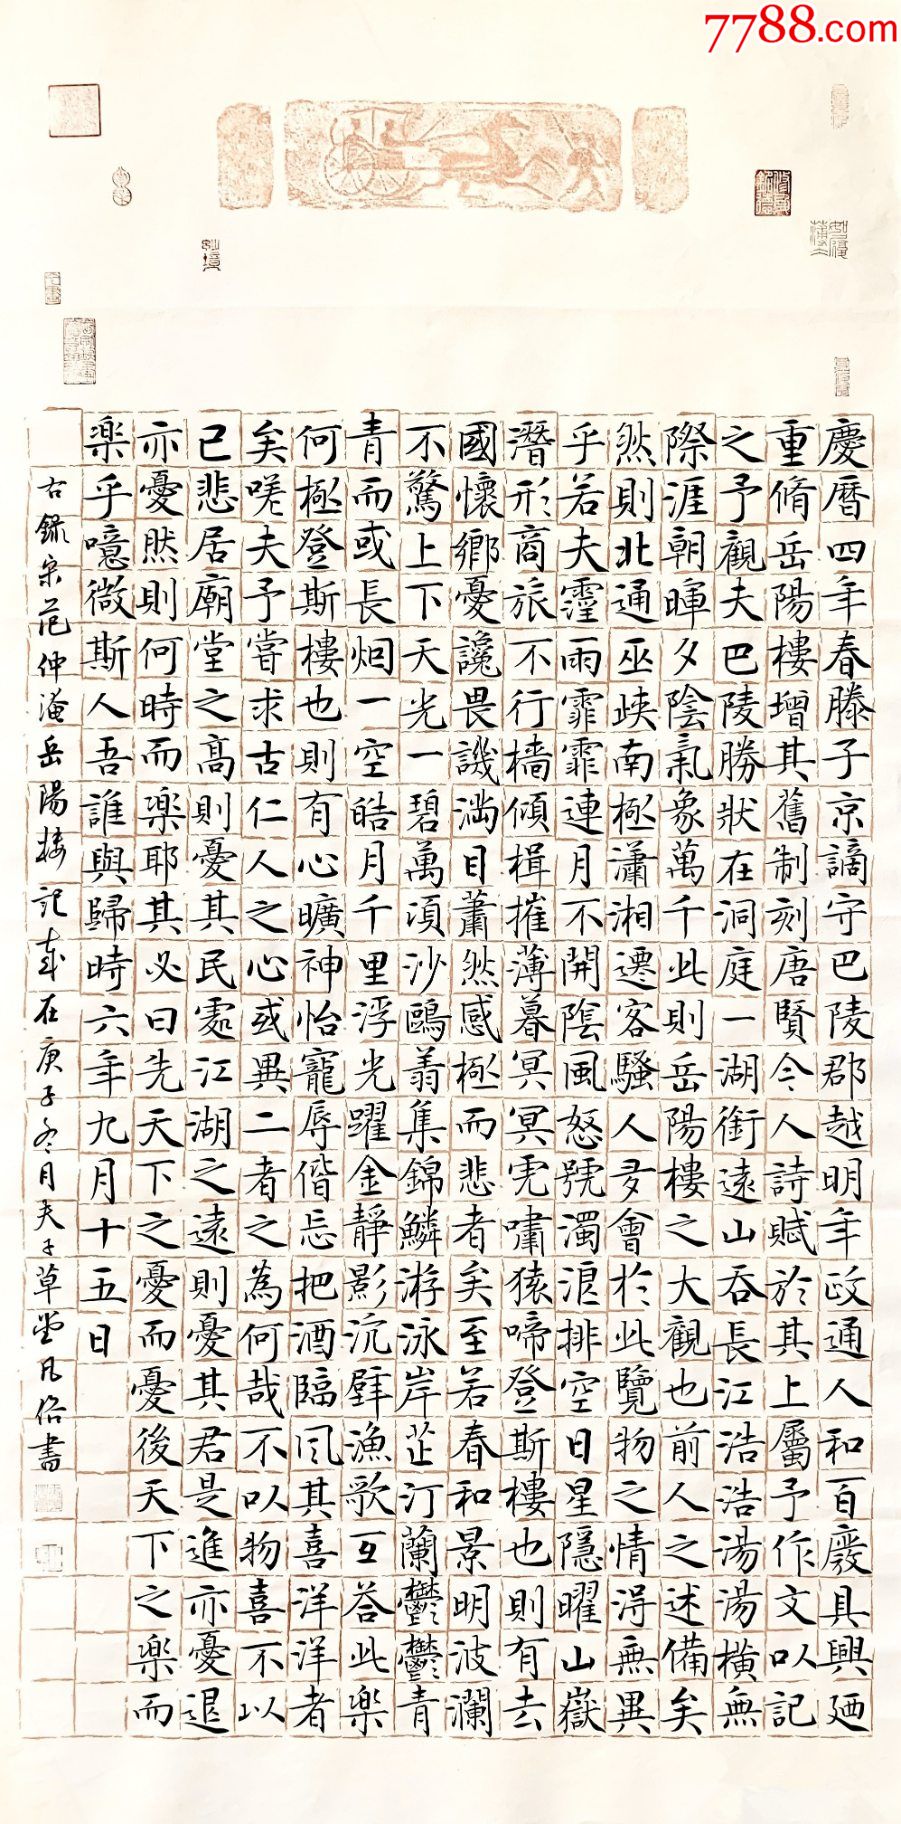 7788.com
慶曆四年春滕子京謫守巴陵郡越明年政通人和百廢具興廼
重脩岳陽樓增其舊制刻唐賢今人詩賦於其上屬予作文以記
之予觀夫巴陵勝狀在洞庭一湖銜遠山吞長江浩浩湯湯橫無
際涯朝暉夕陰氣象萬千此則岳陽樓之大觀也前人之述備矣
然則北通巫峽南極瀟湘遷客騷人多會於此覽物之情得無異
乎若夫霪雨霏霏連月不開陰風怒號濁浪排空日星隱曜山嶽
潛形商旅不行檣傾楫摧薄暮冥冥虎嘯猿啼登斯樓也則有去
國懷鄉憂讒畏譏滿目蕭然感極而悲者矣至若春和景明波瀾
不驚上下天光一碧萬頃沙鷗翔集錦鱗游泳岸芷汀蘭鬱鬱青
青而或長烟一空皓月千里浮光躍金靜影沉璧漁歌互答此楽
何極登斯樓也則有心曠神怡寵辱偕忘把酒臨风其喜洋洋者
矣嗟夫予嘗求古仁人之心或異二者之為何哉不以物喜不以
己悲居廟堂之高則憂其民處江湖之遠則憂其君是進亦憂退
亦憂然則何時而楽耶其必曰先天下之憂而憂後天下之楽而
楽乎噫微斯人吾誰與歸時六年九月十五日
右錄宋范仲淹岳陽樓記歲在庚子冬月夫子草堂凡俗書